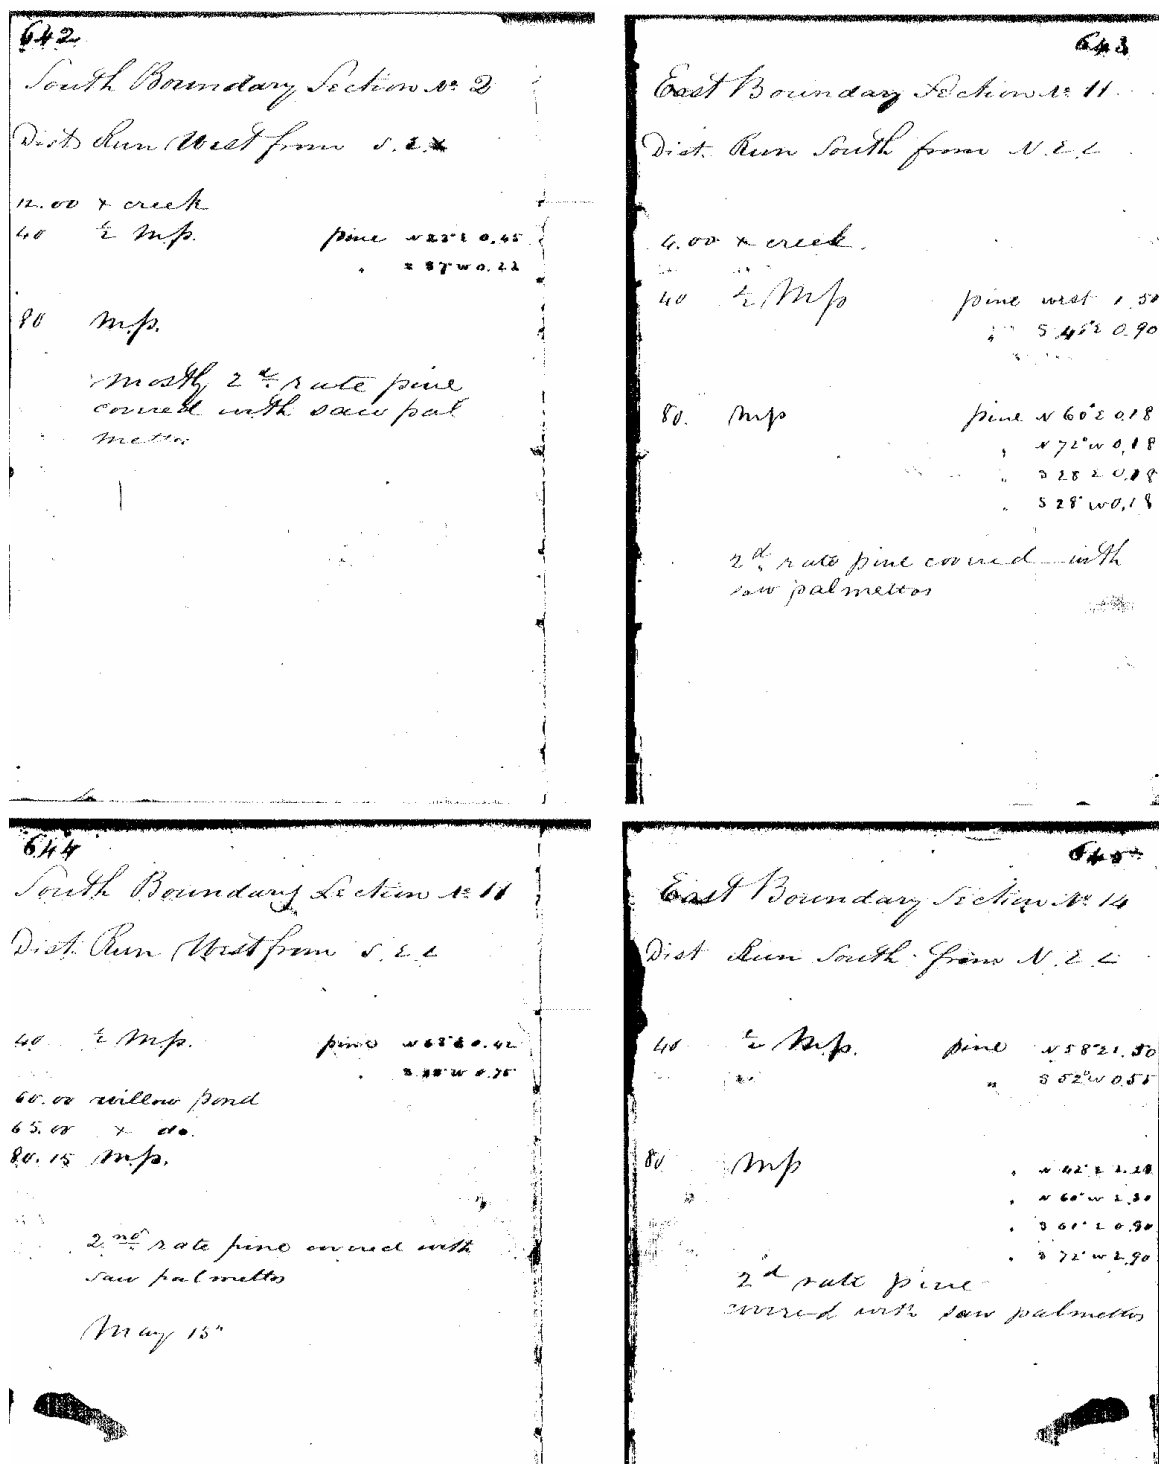 642
South Boundary Section No 2
Dist Run West from S.E.
12.00 x creek
40 ½ Mp. pine N 23° E 0.45
" S 87 W 0.22
80 M.p.
mostly 2d rate pine
covred with saw pal
mettos
643
East Boundary Section No 11
Dist. Run South from N.E.C
4.00 x creek.
40 ½ Mp pine west 1.50
" S 45° E 0.90
80. Mp pine N 60° E 0.18
" N 72° W 0.18
" S 28 E 0.18
" S 28° W 0.18
2d rate pine covred with
saw palmettos
644
South Boundary Section No 11
Dist. Run West from S.E.C
40 ½ Mp. pine N 68° E 0.42
" W 0.75
60.00 willow pond
65.00 x do.
80.15 Mp.
2nd rate pine covred with
saw palmettos
May 15"
645
East Boundary Section No 14
Dist Run South from N.E.C
40 ½ Mp. pine N 58° E 1.50
" S 52° W 0.55
80 Mp " N 42° E 2.28
" N 60° W 2.30
" S 61° E 0.90
" S 72° W 2.90
2d rate pine
covred with saw palmettos